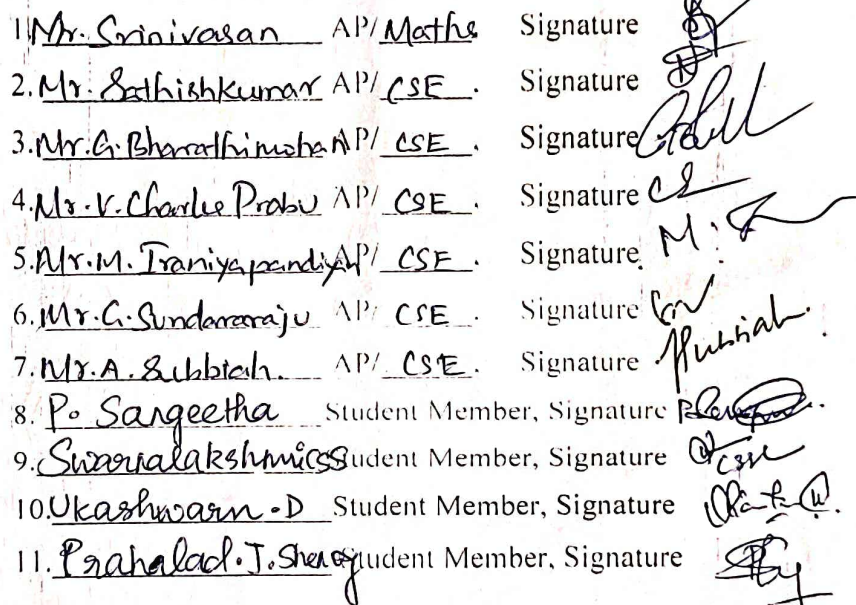 1. Mr. Srinivasan AP/ Maths Signature
2. Mr. Sathishkumar AP/ CSE. Signature
3. Mr. G. Bharathimohan AP/ CSE. Signature
4. Mr. V. Charlie Prabu AP/ CSE. Signature
5. Mr. M. Iraniyapandiyan AP/ CSE. Signature M.
6. Mr. G. Sundararaju AP/ CSE. Signature
7. Mr. A. Subbiah. AP/ CSE. Signature
8. P. Sangeetha Student Member, Signature
9. Swarnalakshmi CSS Student Member, Signature
10. Ukashwarn. D Student Member, Signature
11. Prahalad. J. Shenoy Student Member, Signature